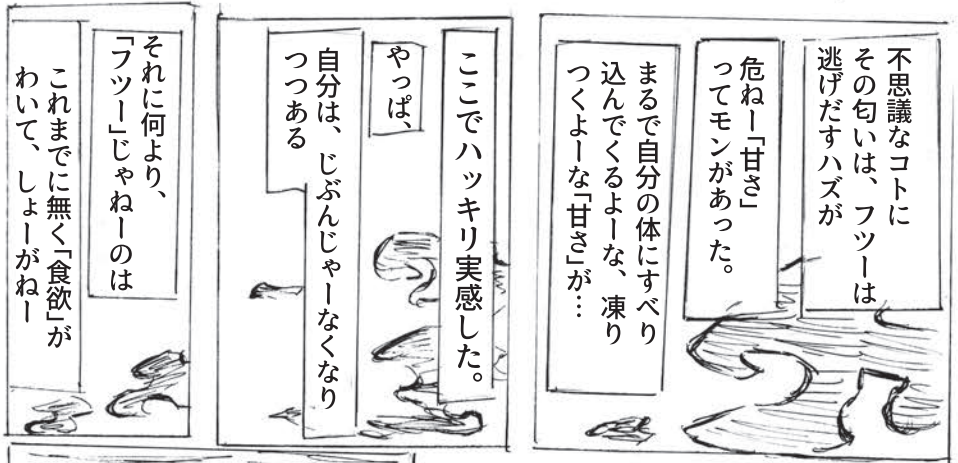 不思議なコトに
その匂いは、フツーは
逃げだすハズが
危ねー「甘さ」
ってモンがあった。
まるで自分の体にすべり
込んでくるよーな、凍り
つくよーな「甘さ」が…
ここでハッキリ実感した。
やっぱ、
自分は、じぶんじゃーなくなり
つつある
それに何より、
「フツー」じゃねーのは
これまでに無く「食欲」が
わいて、しょーがねー